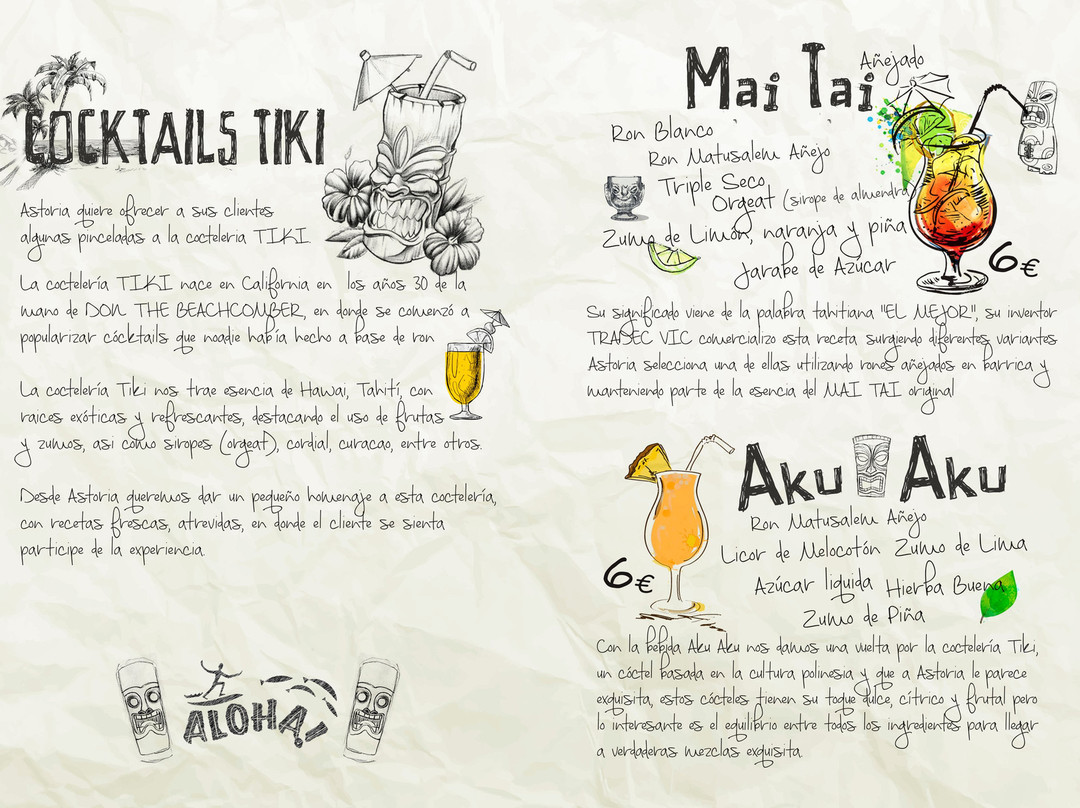 COCKTAILS TIKI
Astoria quiere ofrecer a sus clientes
algunas pinceladas a la cocteleria TIKI
La coctelería TIKI nace en California en los años 30 de la
mano de DON THE BEACHCOMBER, en donde se comenzó a
popularizar cócktails que noadie había hecho a base de ron
La coctelería Tiki nos trae esencia de Hawai, Tahití, con
raices exóticas y refrescantes, destacando el uso de frutas
y zumos, asi como siropes (orgeat), cordial, curacao, entre otros.
Desde Astoria queremos dar un pequeño homenaje a esta coctelería,
con recetas frescas, atrevidas, en donde el cliente se sienta
participe de la experiencia.
ALOHA!
Mai Tai Añejado
Ron Blanco
Ron Matusalem Añejo
Triple Seco
Orgeat (sirope de almendra)
Zumo de Limón, naranja y piña
Jarabe de Azúcar
6€
Su significado viene de la palabra tahitiana "EL MEJOR", su inventor
TRADEC VIC comercializo esta receta surgiendo diferentes variantes
Astoria selecciona una de ellas utilizando rones añejados en barrica y
manteniendo parte de la esencia del MAI TAI original
Aku Aku
Ron Matusalem Añejo
Licor de Melocotón Zumo de Lima
Azúcar liquida Hierba Buena
Zumo de Piña
6€
Con la bebida Aku Aku nos damos una vuelta por la coctelería Tiki,
un cóctel basada en la cultura polinesia y que a Astoria le parece
exquisita, estos cócteles tienen su toque dulce, cítrico y frutal pero
lo interesante es el equilibrio entre todos los ingredientes para llegar
a verdaderas mezclas exquisita.